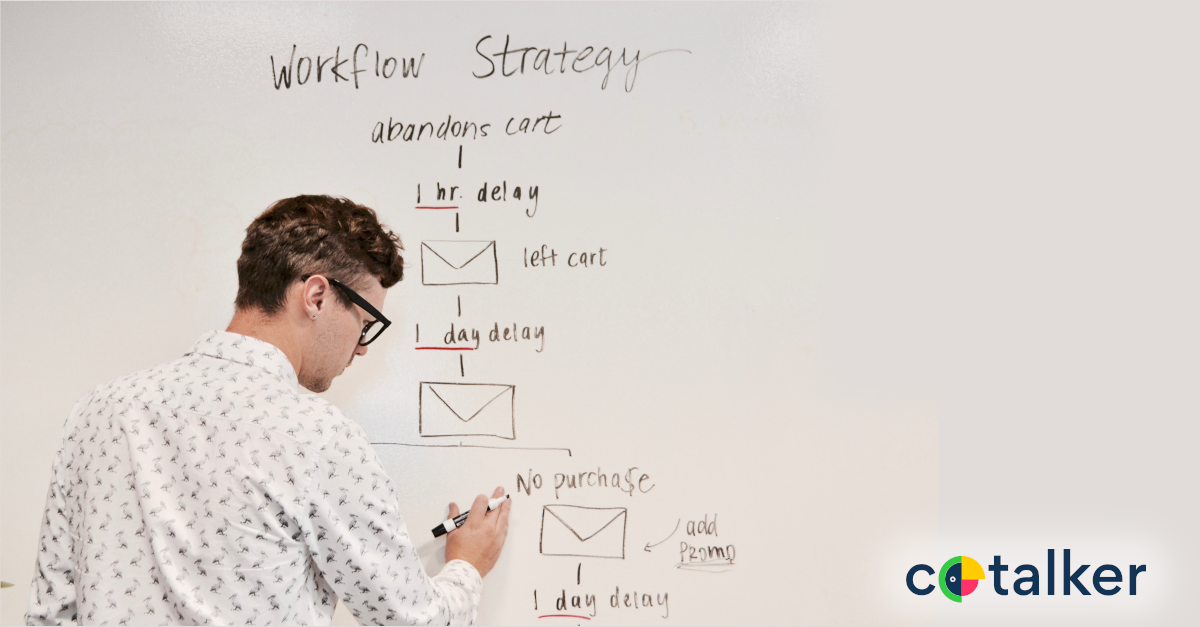 Workflow Strategy
abandons cart
1 hr. delay
left cart
1 day delay
No purcha$e
add
PROMO
1 day delay
cotalker